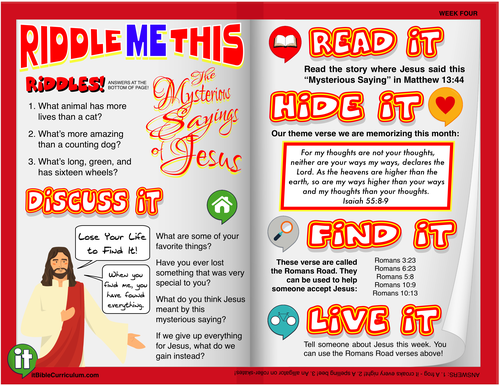 WEEK FOUR
RIDDLE ME THIS
RiDDLES! ANSWERS AT THE
BOTTOM OF PAGE!
1. What animal has more
lives than a cat?
2. What's more amazing
than a counting dog?
3. What's long, green, and
has sixteen wheels?
The
Mysterious
Sayings
of
Jesus
DiSCUSS iT
Lose Your Life
to Find It!
When you
find me, you
have found
everything.
What are some of your
favorite things?
Have you ever lost
something that was very
special to you?
What do you think Jesus
meant by this
mysterious saying?
If we give up everything
for Jesus, what do we
gain instead?
it
itBibleCurriculum.com
READ iT
Read the story where Jesus said this
“Mysterious Saying” in Matthew 13:44
HiDE iT
Our theme verse we are memorizing this month:
For my thoughts are not your thoughts,
neither are your ways my ways, declares the
Lord. As the heavens are higher than the
earth, so are my ways higher than your ways
and my thoughts than your thoughts.
Isaiah 55:8-9
FiND iT
These verse are called
the Romans Road. They
can be used to help
someone accept Jesus:
Romans 3:23
Romans 6:23
Romans 5:8
Romans 10:9
Romans 10:13
LiVE iT
Tell someone about Jesus this week. You
can use the Romans Road verses above!
ANSWERS: 1. A frog - it croaks every night! 2. A spelling bee! 3. An alligator on roller-skates!